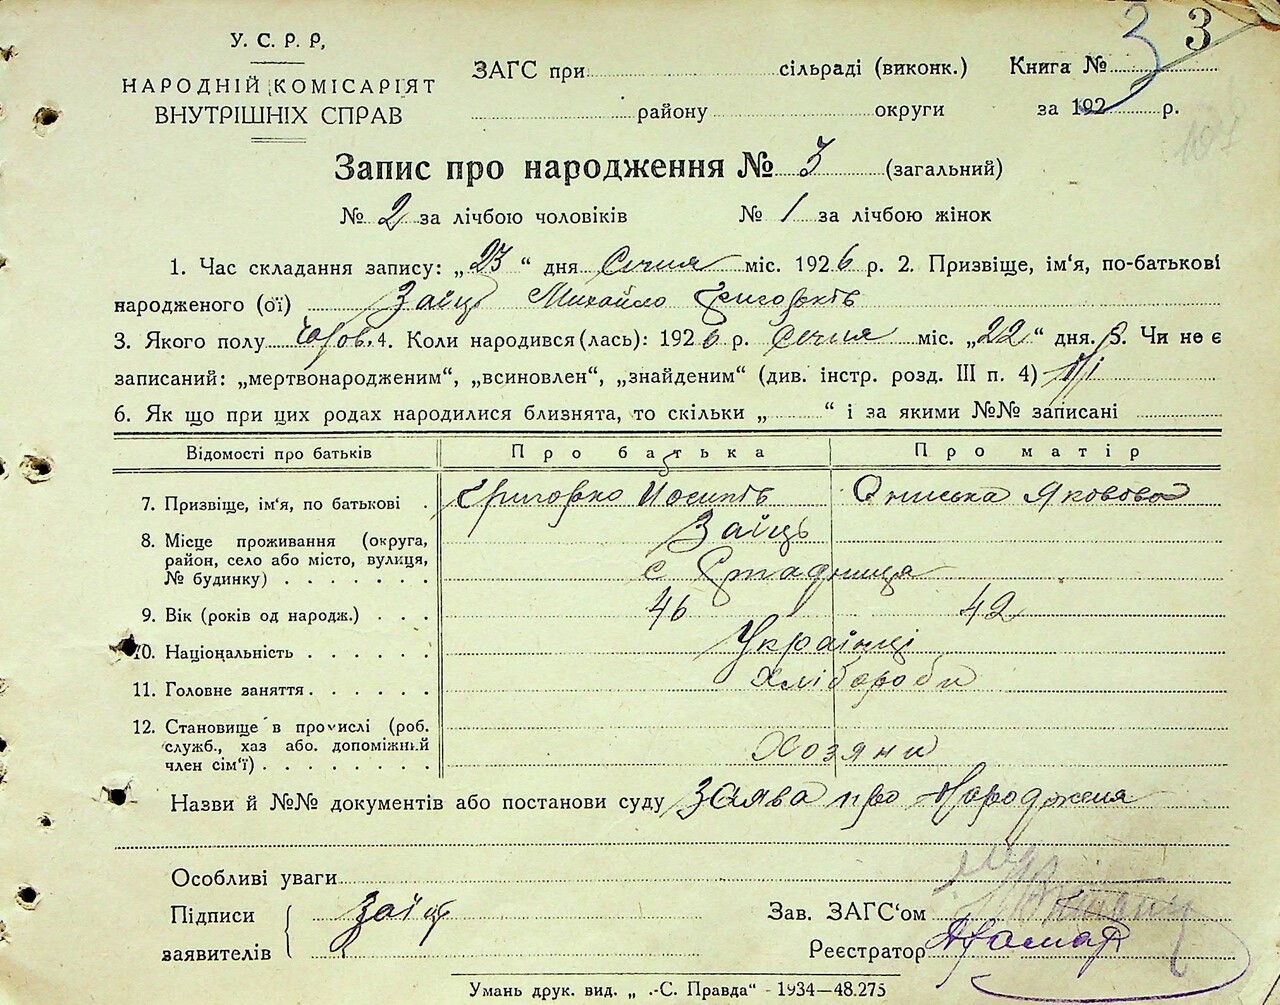 3 3
У. С. Р. Р.
НАРОДНІЙ КОМІСАРІЯТ
ВНУТРІШНІХ СПРАВ
ЗАГС при сільраді (виконк.) Книга №
району округи за 192 р.
104
Запис про народження № 3 (загальний)
№ 2 за лічбою чоловіків № 1 за лічбою жінок
1. Час складання запису: „23“ дня Січня міс. 1926 р. 2. Призвіще, ім‘я, по-батькові
народженого (ої) Заіць Михайло Григорьків
3. Якого полу Чолов. 4. Коли народився (лась): 1926 р. Січня міс. „22“ дня. 5. Чи не є
записаний: „мертвонародженим“, „всиновлен“, „знайденим“ (див. інстр. розд. III п. 4) Ні
6. Як що при цих родах народилися близнята, то скільки „ “ і за якими №№ записані
Відомості про батьків Про батька Про матір
7. Призвіще, ім‘я, по батькові Григорко Йосипів Ониська Яковова
Заіць
8. Місце проживання (округа,
район, село або місто, вулиця,
№ будинку) с Стадниця
9. Вік (років од народж.) 46 42
10. Національність Украінці
11. Головне заняття Хлібороби
12. Становище в промислі (роб.
служб., хаз або. допоміжний
член сім‘ї) Хозяни
Назви й №№ документів або постанови суду Заява про Народженя
Особливі уваги
Підписи Заіць Зав. ЗАГС‘ом
заявителів Реєстратор
Умань друк. вид. „ .-С. Правда“ - 1934—48.275